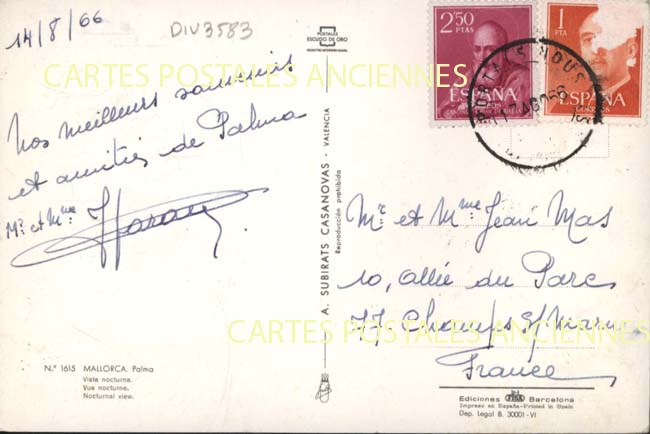 14/8/66
DIV3583
POSTALES
ESCUDO DE ORO
REGISTRO INTERNACIONAL
2'50
PTAS
ESPAÑA
CORREOS
1
PTA
ESPAÑA
CORREOS
PORTALS NOUS
17 AGO 66
CARTES POSTALES ANCIENNES
Nos meilleurs souvenirs
et amitiés de Palma
Mr et Mme
A. SUBIRATS CASANOVAS - VALENCIA
Reproducción prohibida
Mr et Mme Jean Mas
10, Allée du Parc
77 Champs s/ Marne
France
CARTES POSTALES ANCIENNES
N.º 1615 MALLORCA. Palma
Vista nocturna.
Vue nocturne.
Nocturnal view.
Ediciones Barcelona
Impreso en España-Printed in Spain
Dep. Legal B. 30001-VI